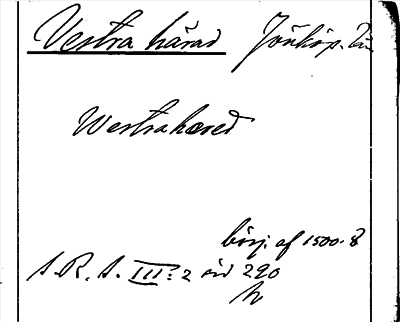 Vestra härad Jönköp. län
Westrahæred
börj. af 1500-t
S. R. A. III: 2 sid 290